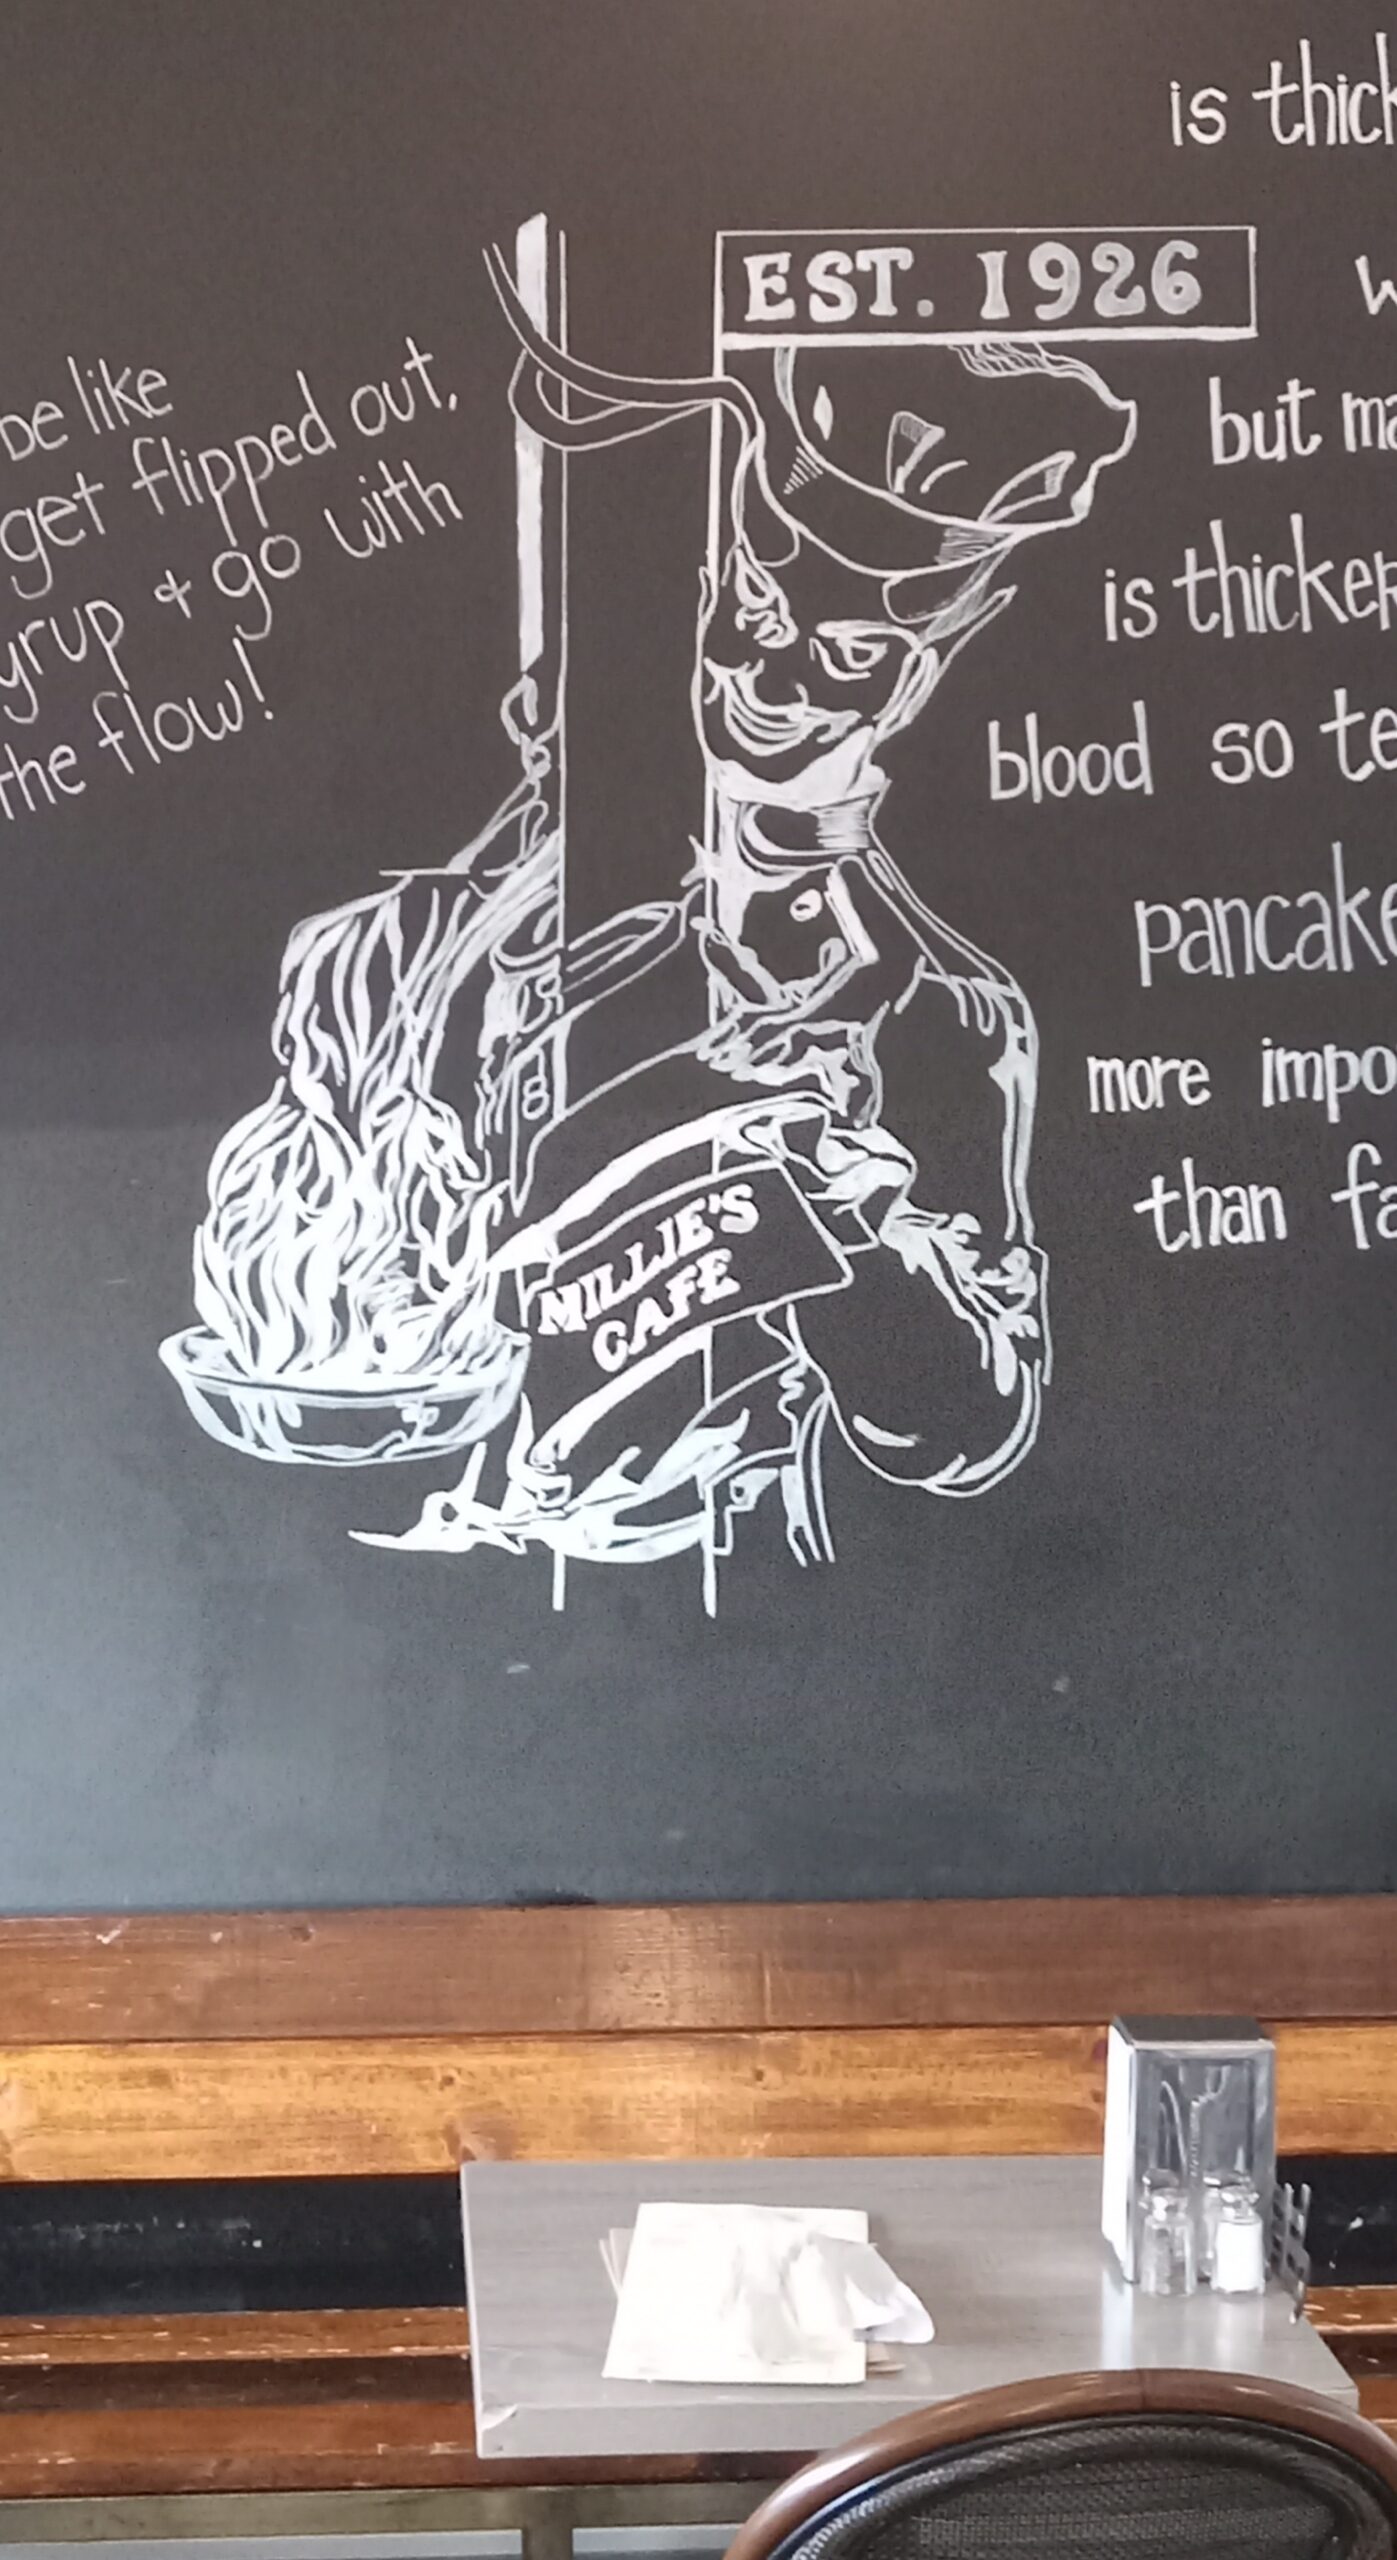 be like
get flipped out,
yrup + go with
the flow!
EST. 1926
MILLIE'S
CAFE
is thick
w
but ma
is thicker
blood so te
pancake
more impo
than fa